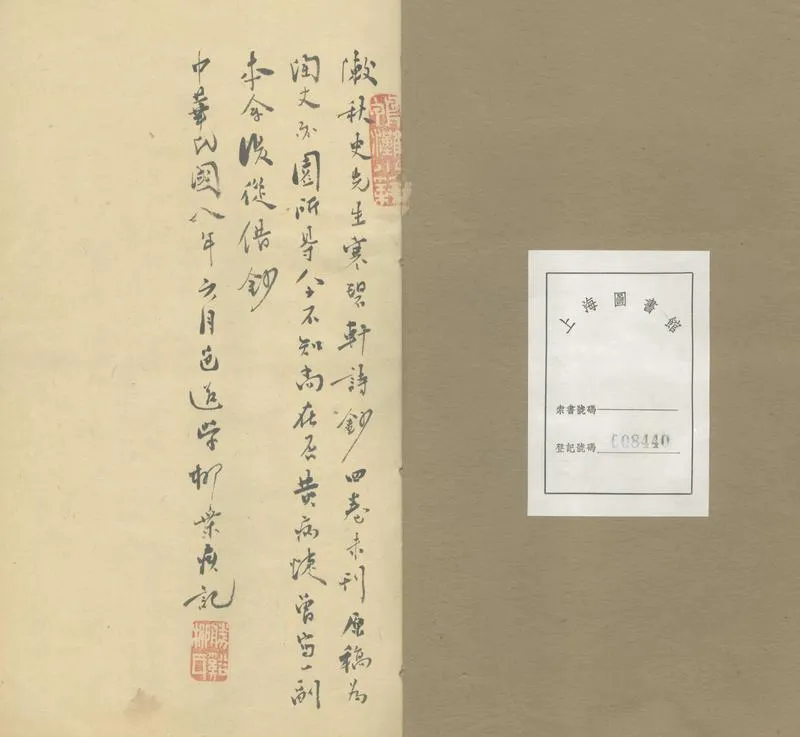 秋史先生寒碧軒詩鈔四卷未刊原稿為
陶丈亦園所得今不知尚在否黃病蜨曾寫一副
本余復從借鈔
中華民國八年六月邑後學柳棄疾記
勝谿柳氏
上海圖書館
索書號碼
登記號碼 008440